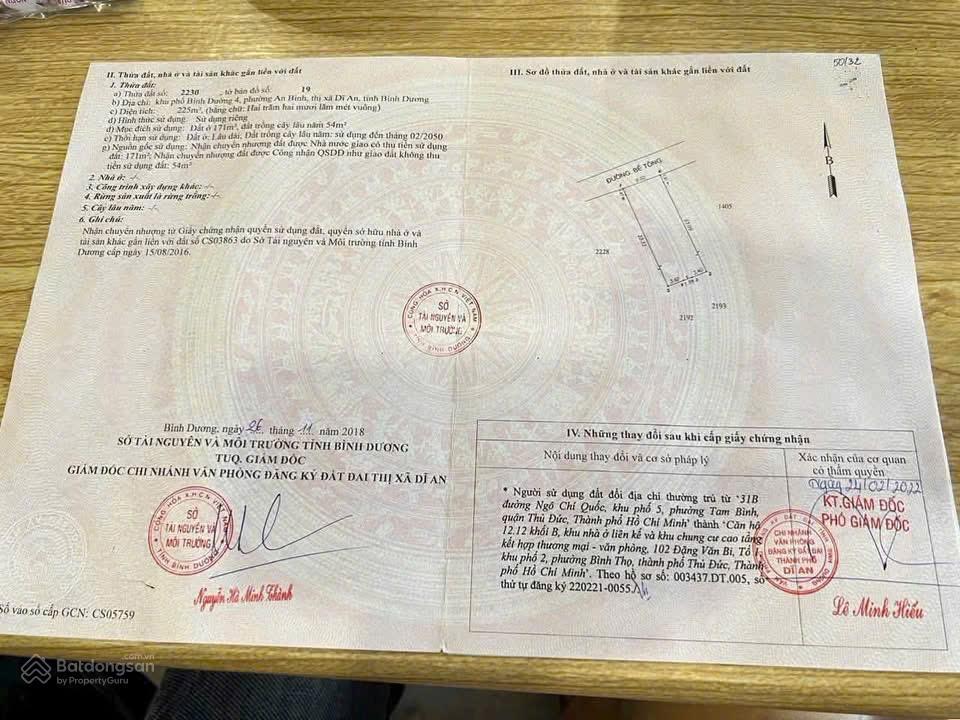 II. Thửa đất, nhà ở và tài sản khác gắn liền với đất
1. Thửa đất:
a) Thửa đất số: 2230 , tờ bản đồ số: 19
b) Địa chỉ: khu phố Bình Đường 4, phường An Bình, thị xã Dĩ An, tỉnh Bình Dương
c) Diện tích: 225m², (bằng chữ: Hai trăm hai mươi lăm mét vuông)
d) Hình thức sử dụng: Sử dụng riêng
đ) Mục đích sử dụng: Đất ở 171m², đất trồng cây lâu năm 54m²
e) Thời hạn sử dụng: Đất ở: Lâu dài; Đất trồng cây lâu năm: sử dụng đến tháng 02/2050
g) Nguồn gốc sử dụng: Nhận chuyển nhượng đất được Nhà nước giao có thu tiền sử dụng
đất: 171m²; Nhận chuyển nhượng đất được Công nhận QSDĐ như giao đất không thu
tiền sử dụng đất: 54m²
2. Nhà ở: -/-
3. Công trình xây dựng khác: -/-
4. Rừng sản xuất là rừng trồng: -/-
5. Cây lâu năm: -/-
6. Ghi chú:
Nhận chuyển nhượng từ Giấy chứng nhận quyền sử dụng đất, quyền sở hữu nhà ở và
tài sản khác gắn liền với đất số CS03863 do Sở Tài nguyên và Môi trường tỉnh Bình
Dương cấp ngày 15/08/2016.
Bình Dương, ngày 26 tháng 11 năm 2018
SỞ TÀI NGUYÊN VÀ MÔI TRƯỜNG TỈNH BÌNH DƯƠNG
TUQ. GIÁM ĐỐC
GIÁM ĐỐC CHI NHÁNH VĂN PHÒNG ĐĂNG KÝ ĐẤT ĐAI THỊ XÃ DĨ AN
SỞ
TÀI NGUYÊN VÀ
MÔI TRƯỜNG
TỈNH BÌNH DƯƠNG
Nguyễn Hà Minh Thành
Số vào sổ cấp GCN: CS05759
CỘNG HÒA X.H.C.N VIỆT NAM
SỞ
TÀI NGUYÊN VÀ
MÔI TRƯỜNG
TỈNH BÌNH DƯƠNG
III. Sơ đồ thửa đất, nhà ở và tài sản khác gắn liền với đất
50/32
B
ĐƯỜNG BÊ TÔNG
1405
2228
2193
2192
IV. Những thay đổi sau khi cấp giấy chứng nhận
Nội dung thay đổi và cơ sở pháp lý
Xác nhận của cơ quan
có thẩm quyền
Ngày 24/02/2022
KT.GIÁM ĐỐC
PHÓ GIÁM ĐỐC
• Người sử dụng đất đổi địa chỉ thường trú từ '31B
đường Ngô Chí Quốc, khu phố 5, phường Tam Bình,
quận Thủ Đức, Thành phố Hồ Chí Minh' thành 'Căn hộ
12.12 khối B, khu nhà ở liên kế và khu chung cư cao tầng
kết hợp thương mại - văn phòng, 102 Đặng Văn Bi, Tổ 1,
khu phố 2, phường Bình Thọ, thành phố Thủ Đức, Thành
phố Hồ Chí Minh'. Theo hồ sơ số: 003437.DT.005, số
thứ tự đăng ký 220221-0055
CHI NHÁNH
VĂN PHÒNG
ĐĂNG KÝ ĐẤT ĐAI
THÀNH PHỐ
DĨ AN
Lê Minh Hiếu
Batdongsan
.com.vn
by PropertyGuru